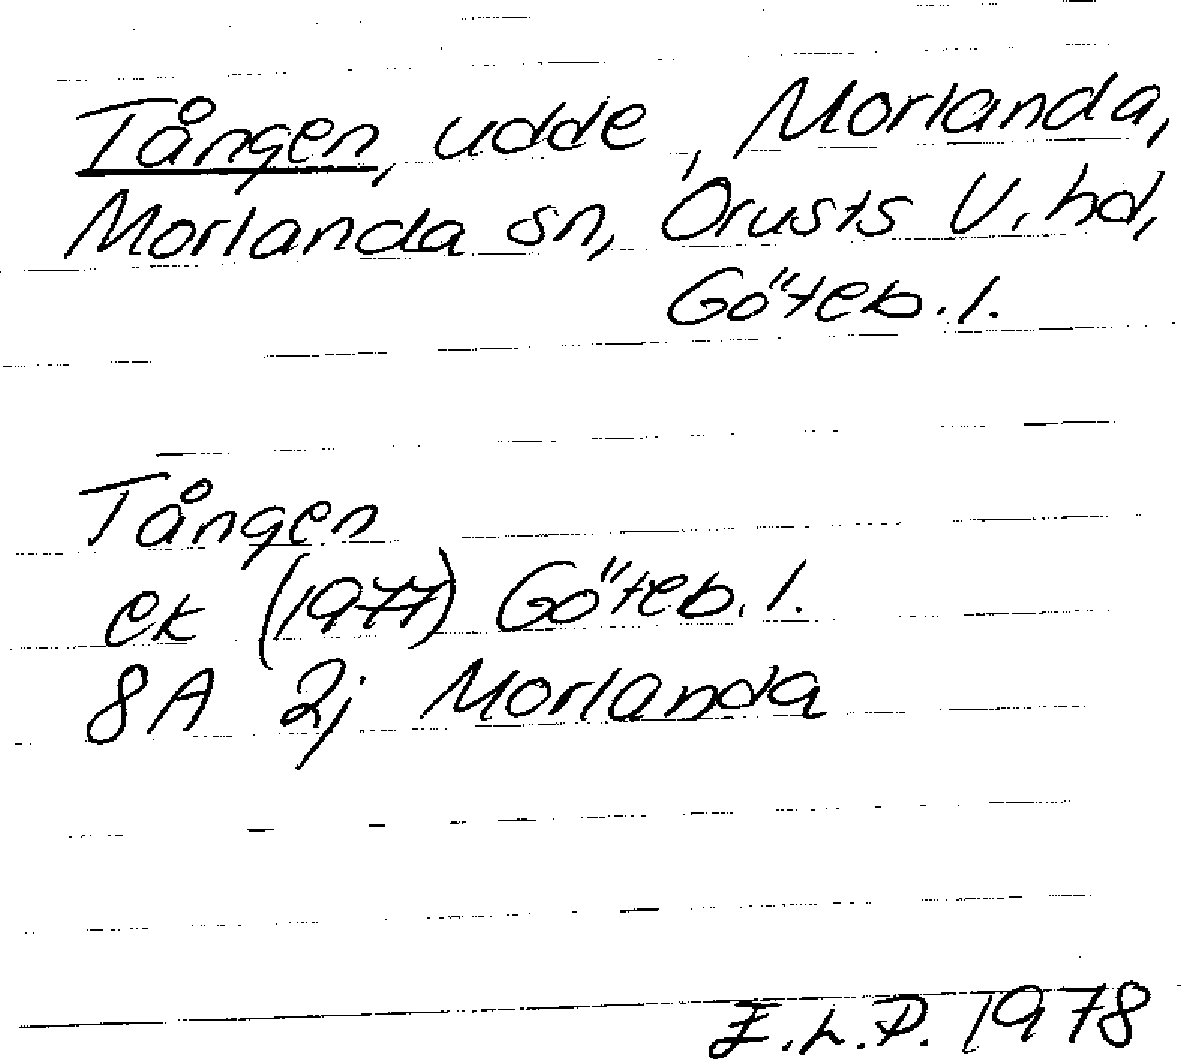 Tången, udde, Morlanda,
Morlanda sn, Orusts V. hd,
Göteb. l.
Tången
ek (1977) Göteb. l.
8A 2j Morlanda
E.L.P. 1978